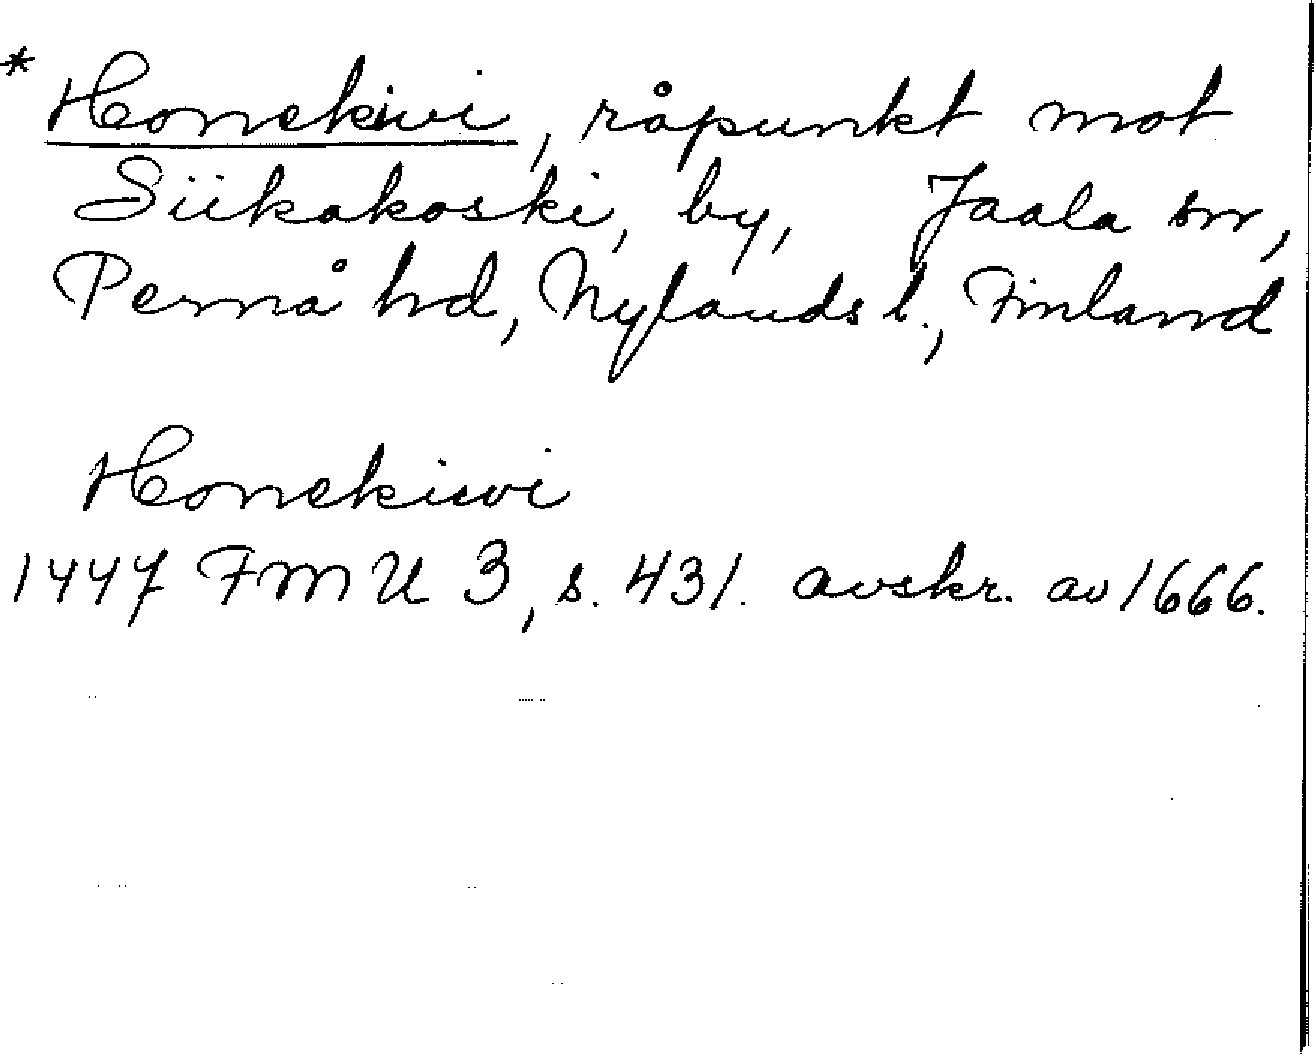 * Honekiwi, råpunkt mot
Siikakoski, by, Jaala sn,
Pernå hd, Nylands l., Finland
Honekiwi
1447 FMU 3, s. 431. avskr. av 1666.